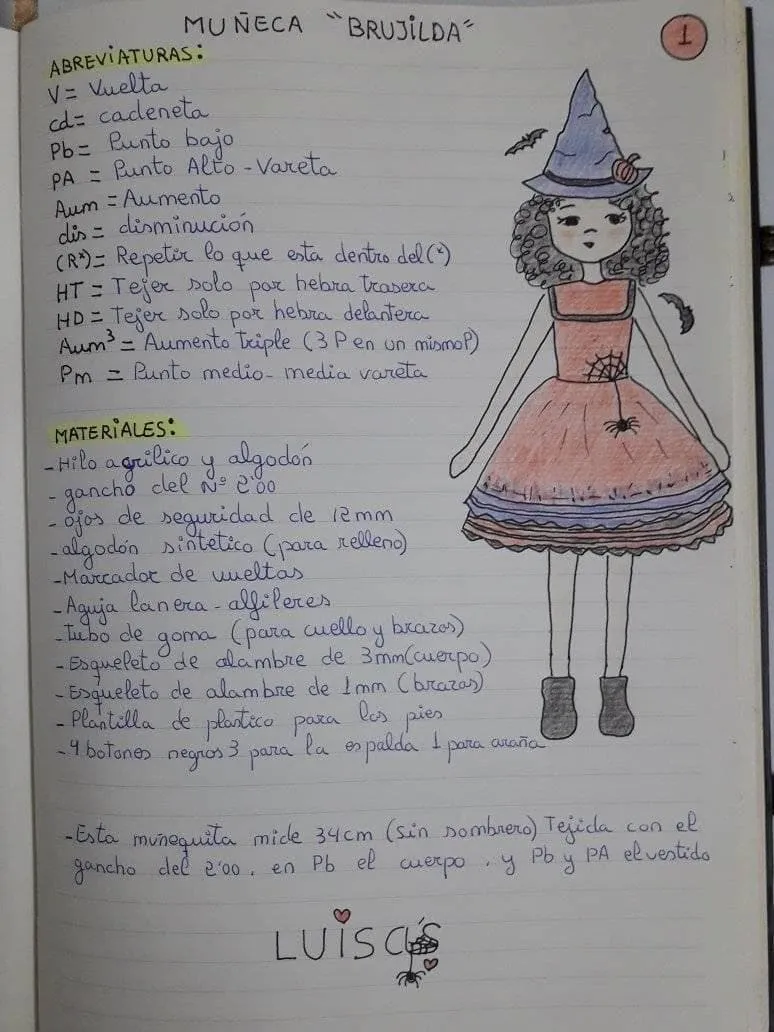 MUÑECA "BRUJILDA"
1
ABREVIATURAS:
V = Vuelta
cd = cadeneta
Pb = Punto bajo
PA = Punto Alto - Vareta
Aum = Aumento
dis = disminución
(R*) = Repetir lo que esta dentro del (*)
HT = Tejer solo por hebra trasera
HD = Tejer solo por hebra delantera
Aum³ = Aumento triple (3 P en un mismo P)
Pm = Punto medio - media vareta
MATERIALES:
- Hilo agrilico y algodón
- gancho del Nº 2'00
- ojos de seguridad de 12mm
- algodón sintetico (para relleno)
- Marcador de vueltas
- Aguja lanera - alfileres
- Tubo de goma (para cuello y brazos)
- Esqueleto de alambre de 3mm (cuerpo)
- Esqueleto de alambre de 1mm (brazos)
- Plantilla de plastico para los pies
- 4 botones negros 3 para la espalda 1 para araña
- Esta muñequita mide 34cm (sin sombrero) Tejida con el
gancho del 2'00. en Pb el cuerpo. y Pb y PA el vestido
LUISCÚS